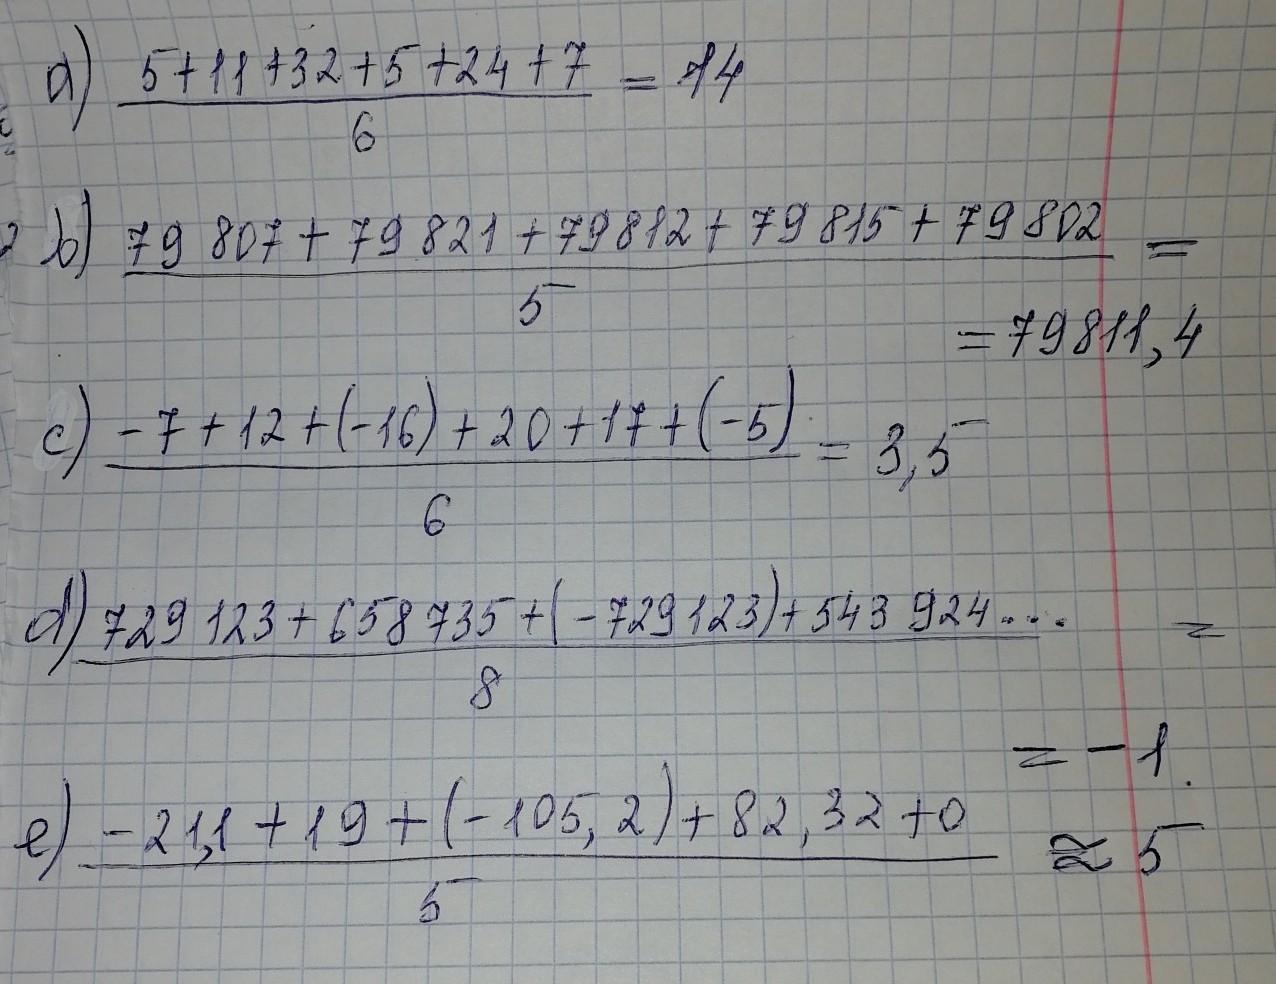 a) 5+11+32+5+24+7 = 14
6
b) 79 807 + 79 821 + 79812 + 79 815 + 79 802 =
5
= 79811,4
c) -7+12+(-16)+20+17+(-5) = 3,5
6
d) 729 123 + 658 735 + (-729123) + 543 924.... =
8
= -1.
e) -21,1 + 19 + (-105,2) + 82,32 + 0 ≈ 5
5